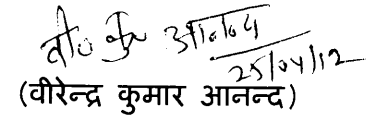 वी० कु० आनन्द
25/04/12
(वीरेन्द्र कुमार आनन्द)